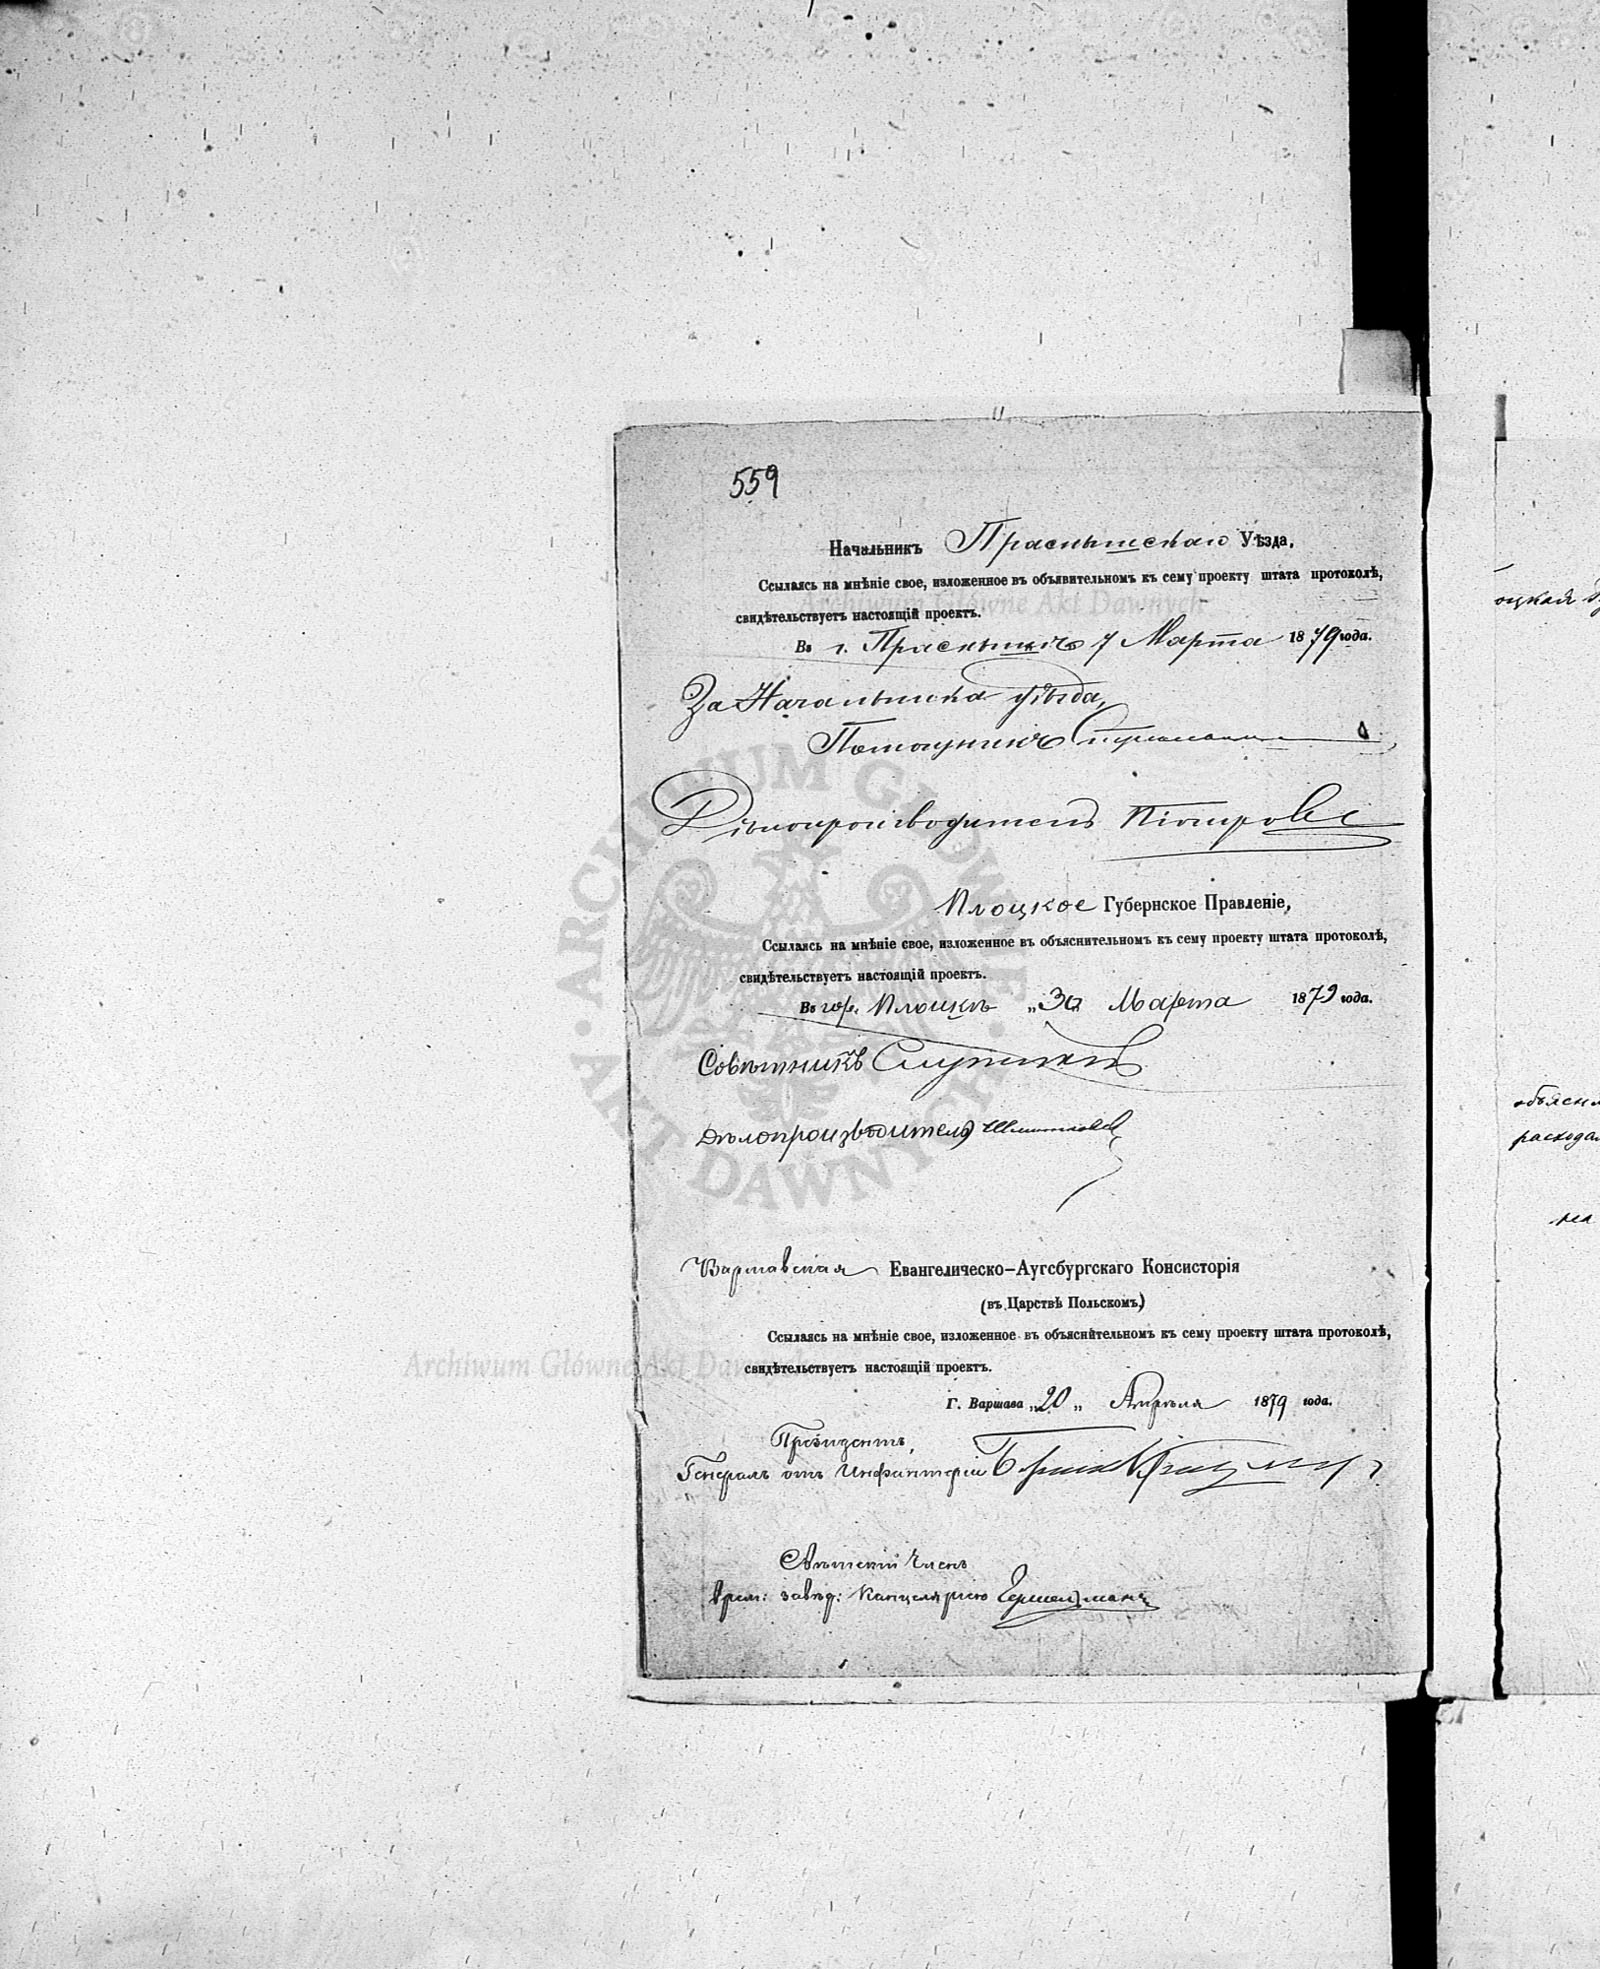 559
Начальникъ Праснышскаго Уѣзда,
Ссылаясь на мнѣніе свое, изложенное въ объявительномъ къ сему проекту штата протоколѣ,
свидѣтельствуетъ настоящій проектъ.
Въ г. Праснышѣ 7 Марта 1879 года.
За Начальника Уѣзда,
Помощникъ
Дѣлопроизводитель
Плоцкое Губернское Правленіе,
Ссылаясь на мнѣніе свое, изложенное въ объяснительномъ къ сему проекту штата протоколѣ,
свидѣтельствуетъ настоящій проектъ.
Въ гор. Плоцкѣ „30„ Марта 1879 года.
Совѣтникъ
Дѣлопроизводитель
Варшавская Евангелическо-Аугсбургскаго Консисторія
(въ Царствѣ Польскомъ)
Ссылаясь на мнѣніе свое, изложенное въ объяснительномъ къ сему проекту штата протоколѣ,
свидѣтельствуетъ настоящій проектъ.
Г. Варшава „20„ Апрѣля 1879 года.
Президентъ,
Генералъ отъ Инфантеріи
Свѣтскій Членъ
Врем: завѣд: Канцеляріею
Archiwum Główne Akt Dawnych
ARCHIWUM GŁÓWNE · AKT DAWNYCH ·
Archiwum Główne Akt Dawnych